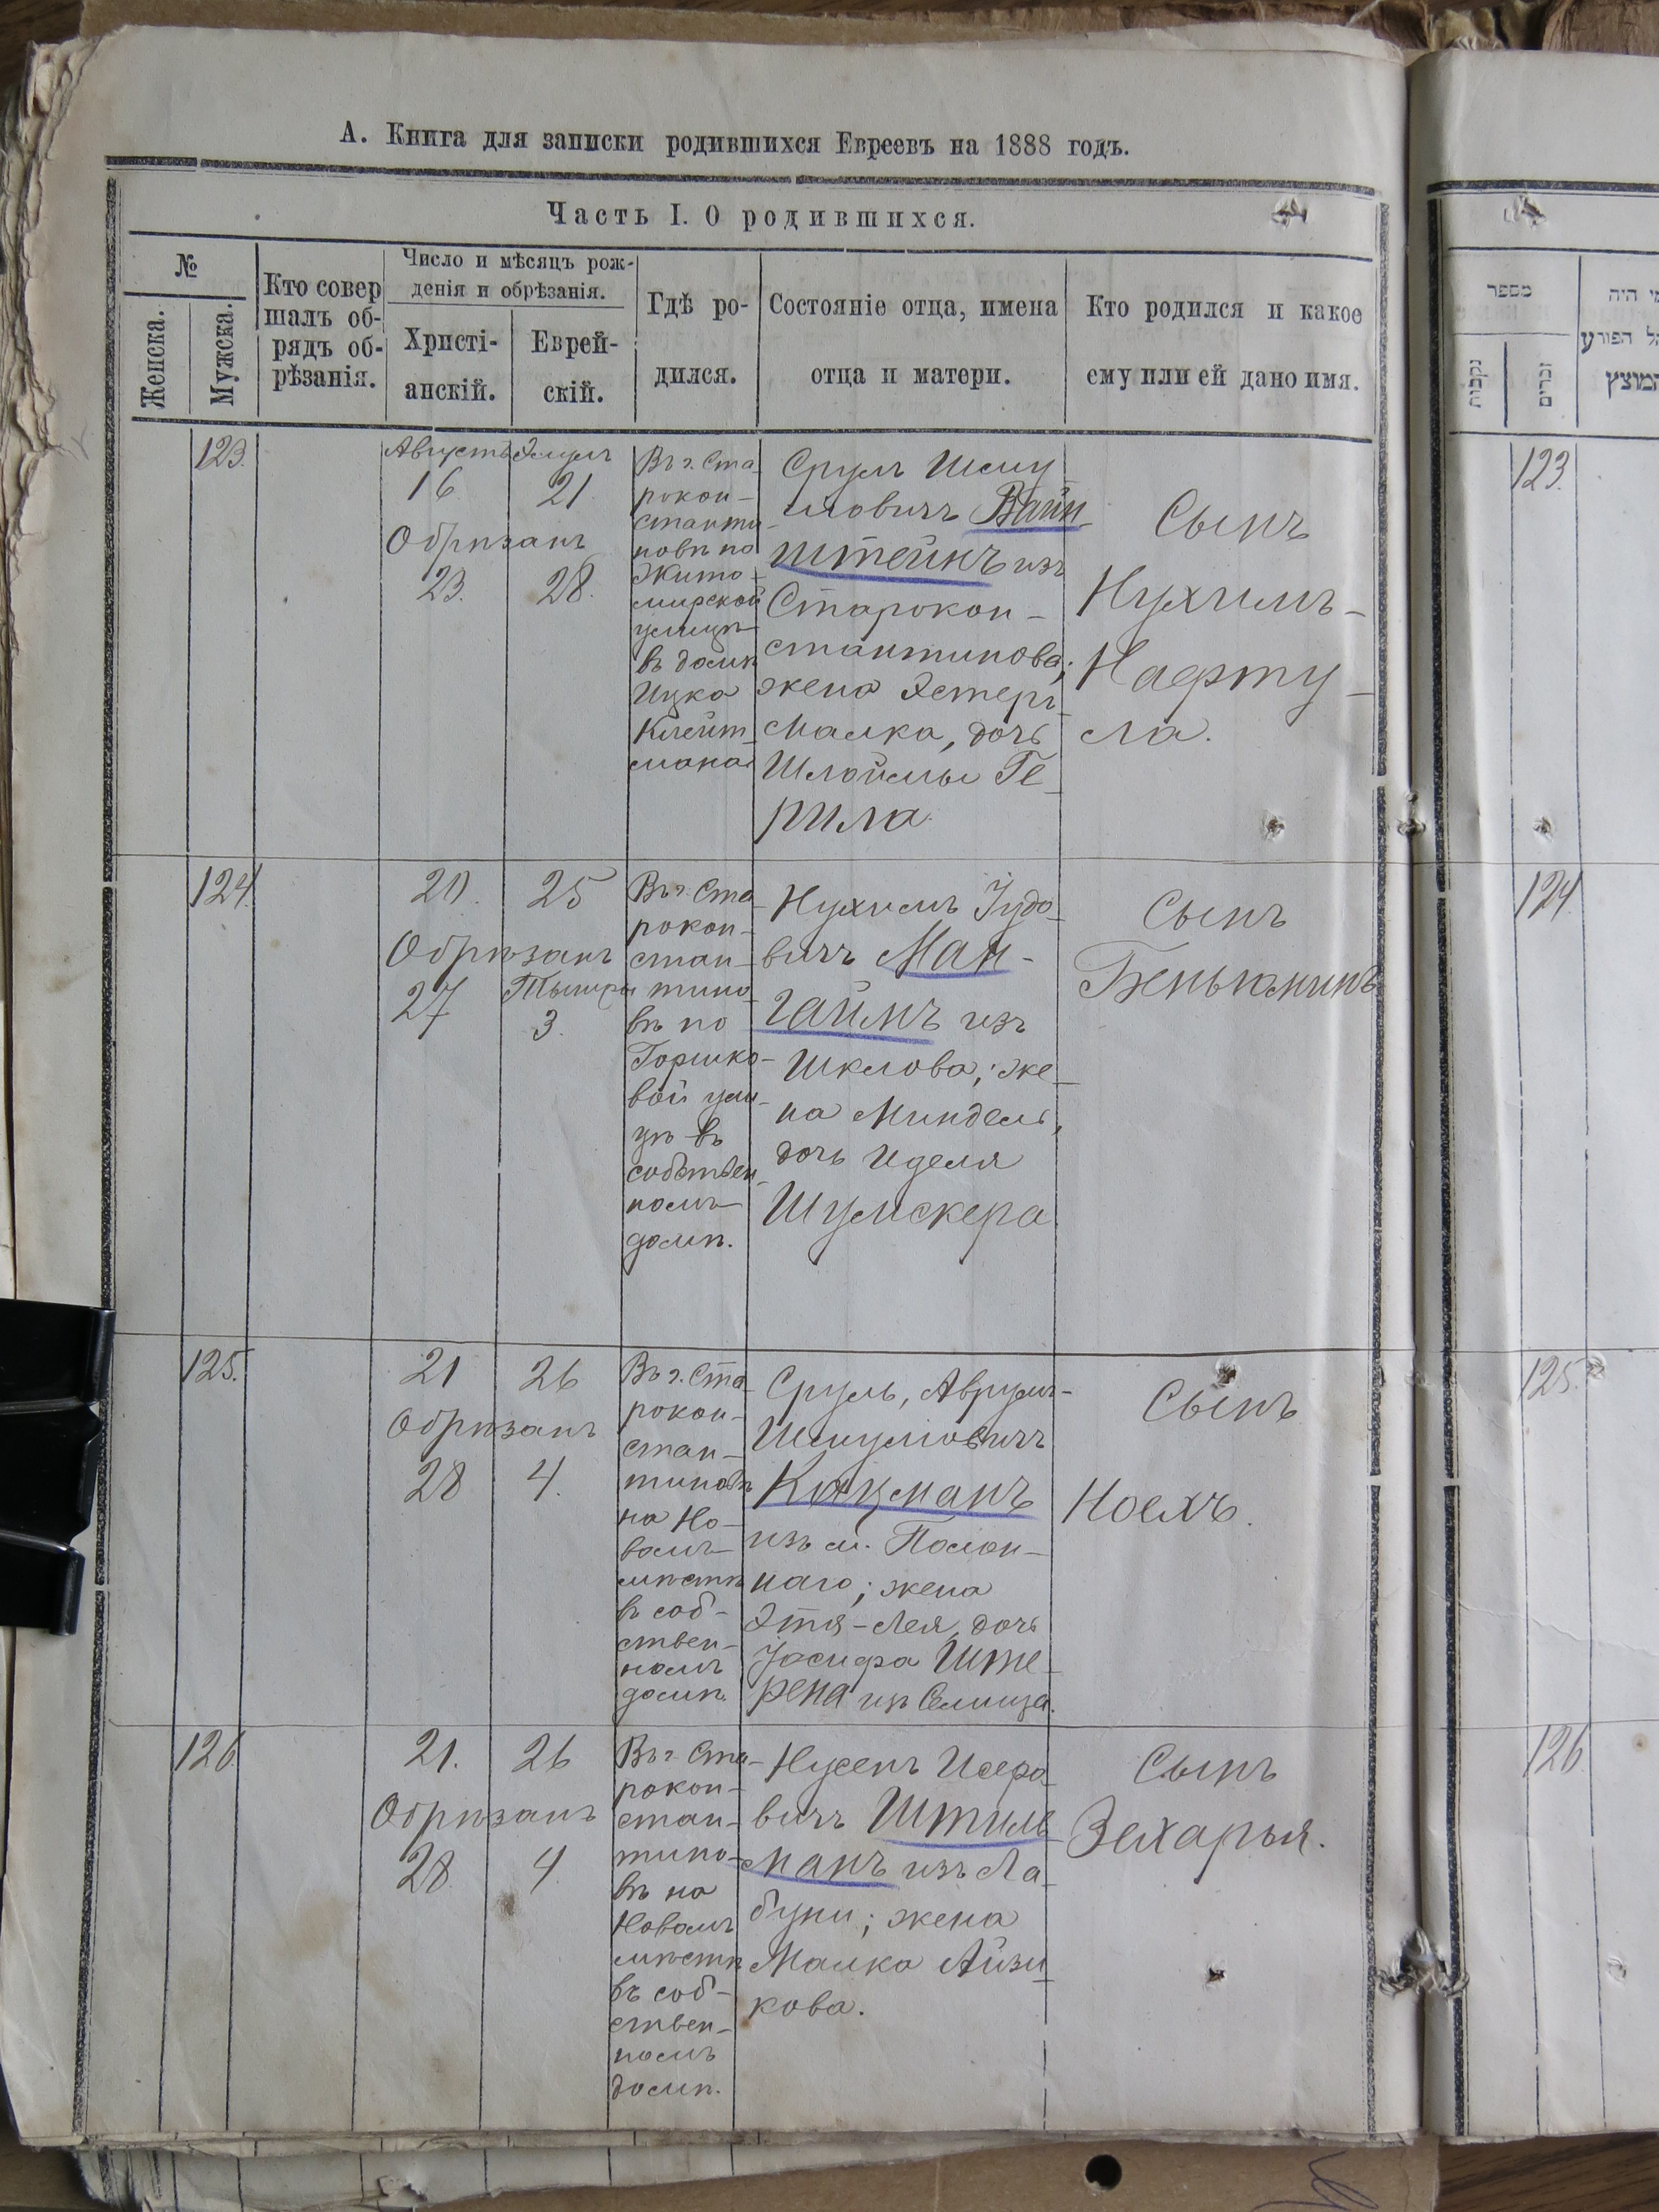 А. Книга для записки родившихся Евреевъ на 1888 годъ.
Часть I. О родившихся.
№
Женска.
Мужска.
Кто совер
шалъ об-
рядъ об-
рѣзанія.
Число и мѣсяцъ рож-
денія и обрѣзанія.
Христі-
анскій.
Еврей-
скій.
Гдѣ ро-
дился.
Состояніе отца, имена
отца и матери.
Кто родился и какое
ему или ей дано имя.
מספר
נקבות
זכרים
מי היה
הפורע
המוצץ
123.
Августъ Элулъ
16. 21.
Обрѣзанъ
23. 28.
Въ г. Ста-
рокон-
станти-
новѣ по
Жито-
мирской
улицѣ
въ домѣ
Ицка
Клейт-
мана
Срулъ Шму
иловичъ Вайн-
штейнъ изъ
Старокон-
стантинова;
жена Эстеръ-
Малка, дочь
Шлоймы Ге-
рила.
Сынъ
Нухимъ-
Нафту-
ла.
123.
124.
20. 25
Обрѣзанъ
27 Тышри
3.
Въ г. Ста-
рокон-
стан-
тино-
вѣ по
Горшко-
вой ули-
цѣ въ
собствен-
номъ
домѣ.
Нухимъ Іудо-
вичъ Ман-
гаймъ изъ
Шклова; же-
на Миндель,
дочь Иделя
Шумскера.
Сынъ
Беньяминъ
124.
125.
21 26
Обрѣзанъ
28 4.
Въ г. Ста-
рокон-
стан-
тиновѣ
на Но-
вомъ
мѣстѣ
въ соб-
ствен-
номъ
домѣ.
Сруль, Аврумъ-
Шмулиовичъ
Кацманъ
изъ м. Полон-
наго; жена
Этя-Лея, дочь
Іосифа Ште-
рена изъ
Сынъ
Ноехъ.
125.
126.
21. 26
Обрѣзанъ
28. 4.
Въ г. Ста-
рокон-
стан-
тино-
вѣ на
Новомъ
мѣстѣ
въ соб-
ствен-
номъ
домѣ.
Нусенъ Исеро-
вичъ Штиль-
манъ изъ Ла-
буни; жена
Малка Айзи-
кова.
Сынъ
Зехарья.
126.